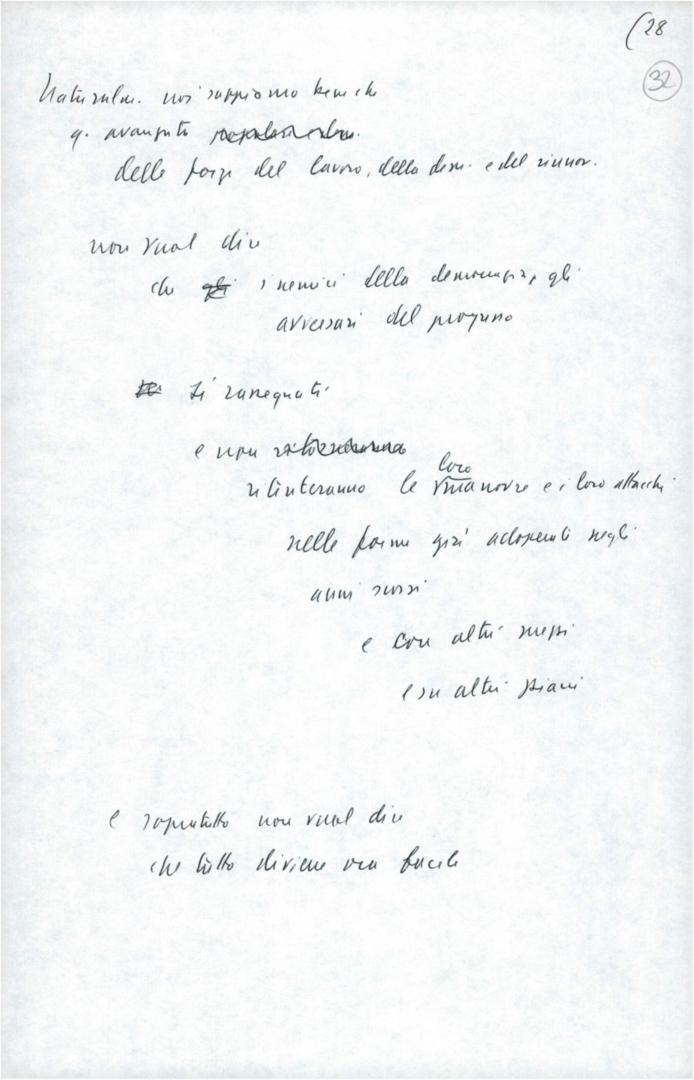 (28
32
Naturalm. noi sappiamo bene che
q. avanzata
delle forze del lavoro, della dem. e del rinnov.
non vuol dire
che gli i nemici della democrazia, gli
avversari del progresso
si rassegnati
e non
ritenteranno le loro manovre e i loro attacchi
nelle forme già adoperati negli
anni scorsi
e con altri mezzi
e su altri piani
e sopratutto non vuol dire
che tutto diviene ora facile